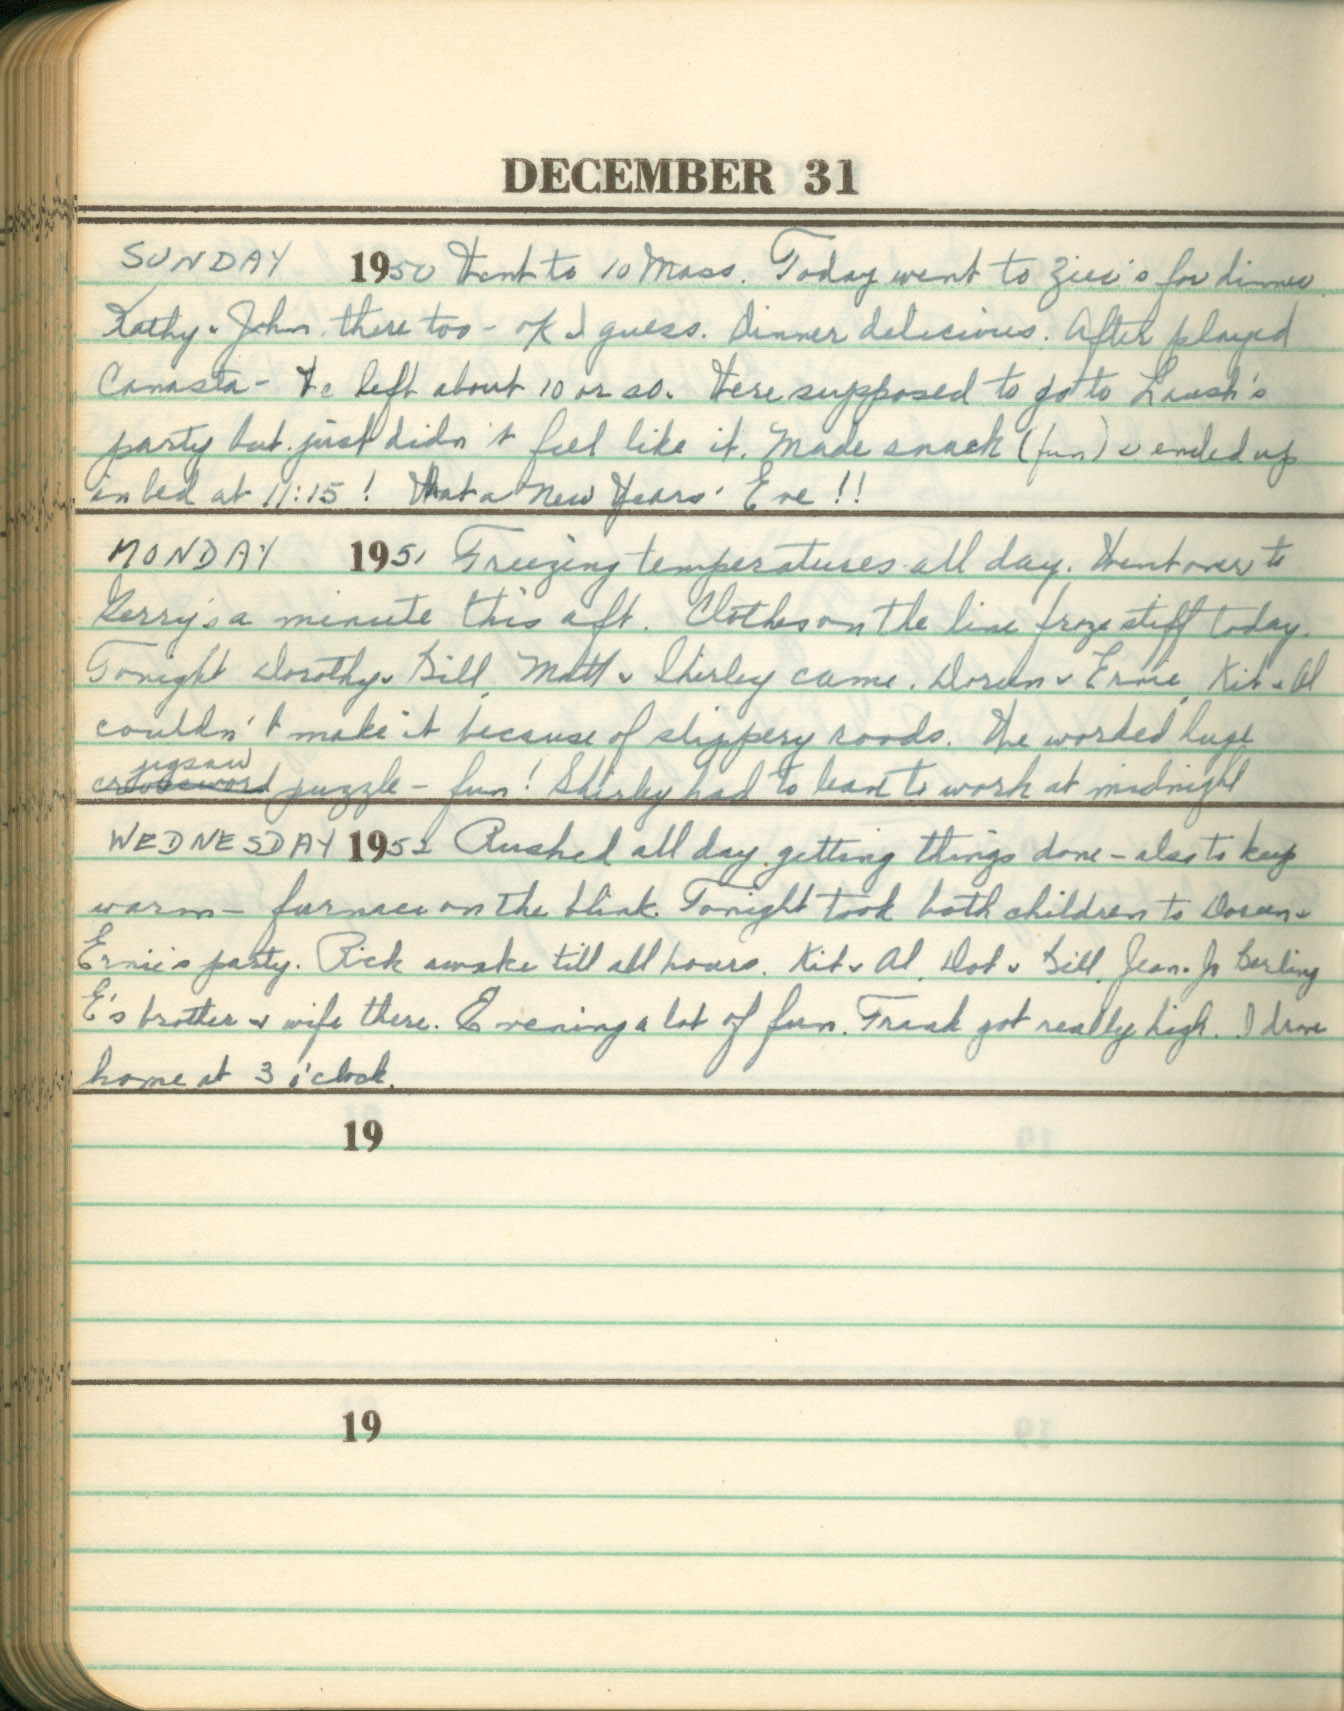 DECEMBER 31
SUNDAY 1950 Went to 10 Mass. Today went to for dinner
Kathy & John there too - ok I guess. Dinner delicious. After played
Canasta - We left about 10 or so. Were supposed to go to
party but just didn't feel like it. Made snack (fun) & ended up
in bed at 11:15! What a New Years' Eve!!
MONDAY 1951 Freezing temperatures all day. Went over to
Gerry's a minute this aft. Clothes on the line froze stiff today.
Tonight Dorothy & Bill, Matt & Shirley came. Doreen & Ernie, Kit & Al
couldn't make it because of slippery roads. We worked huge
jigsaw
crossword puzzle - fun! Shirley had to leave to work at midnight
WEDNESDAY 1952 Rushed all day getting things done - also to keep
warm - furnace on the blink. Tonight took both children to Doreen &
Ernie's party. Rick awake till all hours. Kit & Al, Dot & Bill, Jean &
E's brother & wife there. Evening a lot of fun. Frank got really high. I drove
home at 3 o'clock.
19
19